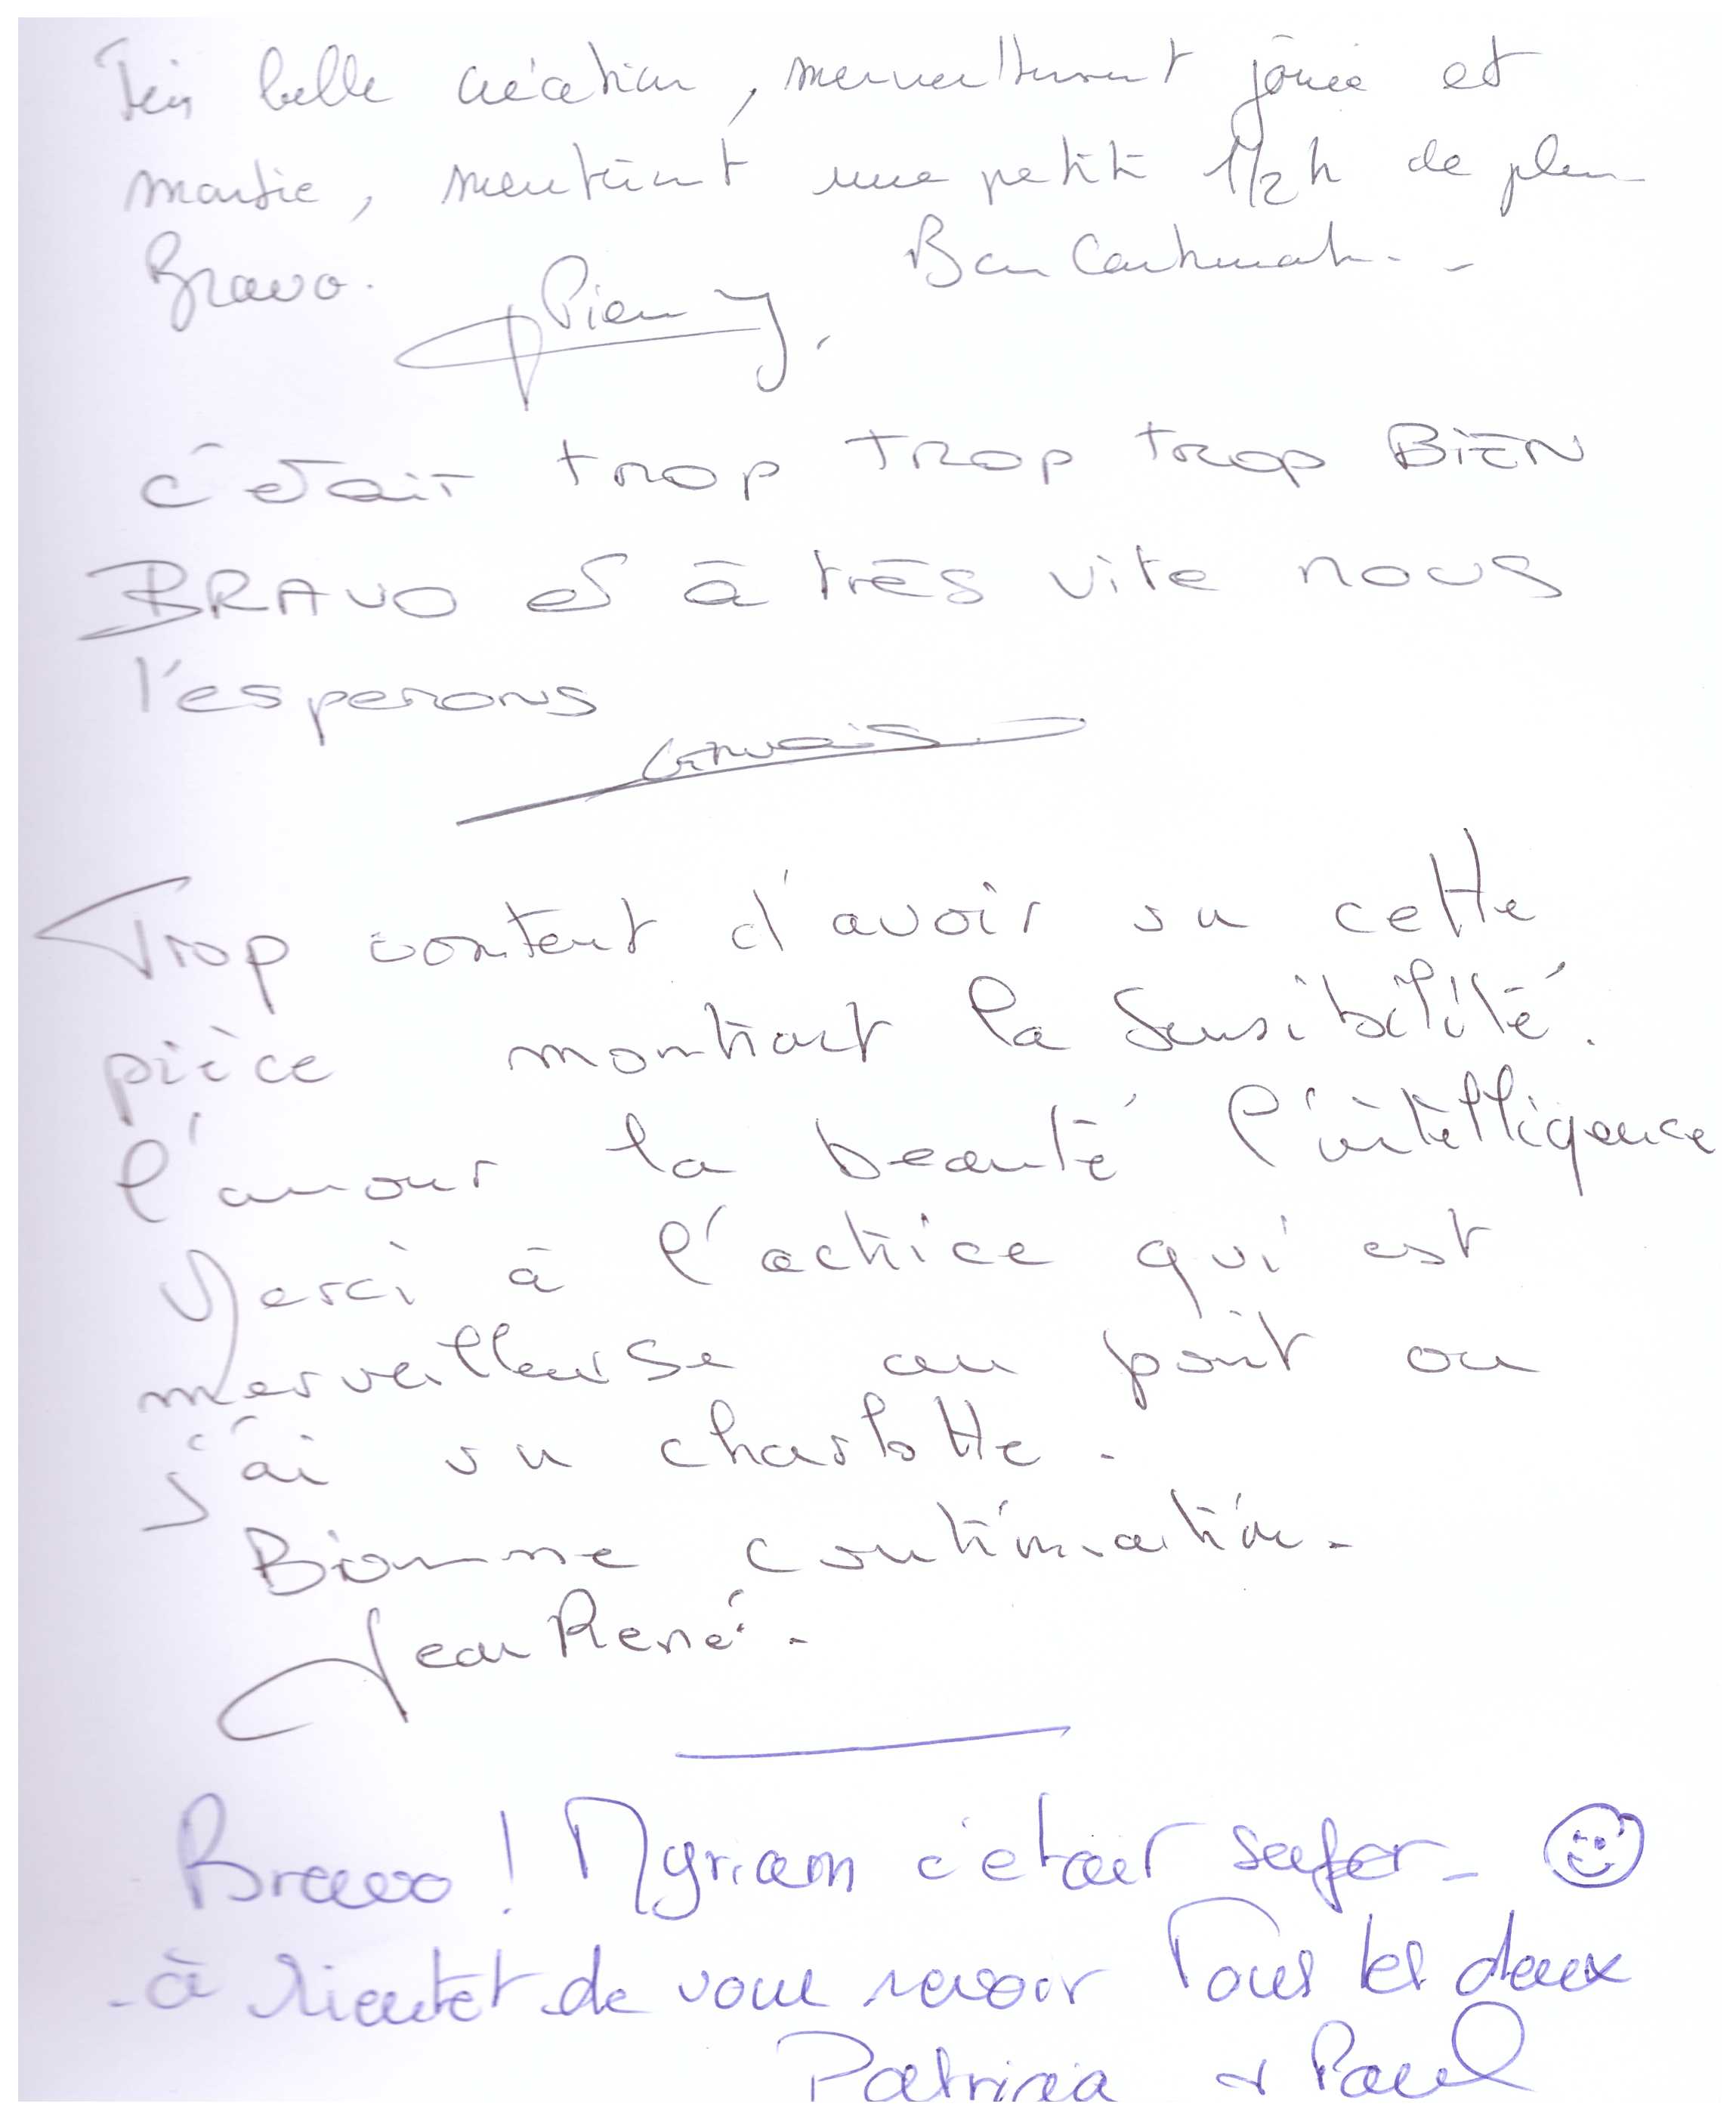 Très belle création, merveilleusement jouée et
montée, méritant une petite 1/2 h de plus
Bravo. Bon Continuat...
Pierre
c'etait trop TROP trop BIEN
BRAVO et à très vite nous
l'esperons
Gervais
Trop content d'avoir vu cette
pièce montrant la sensibilité.
l'amour la beauté l'intelligence
Merci à l'actrice qui est
merveilleuse au point ou
j'ai vu charlotte.
Bonne continuation.
Jean René.
Bravo ! Myriam c'etait super 
- à bientot de vous revoir Tous les deux
Patricia et Paul